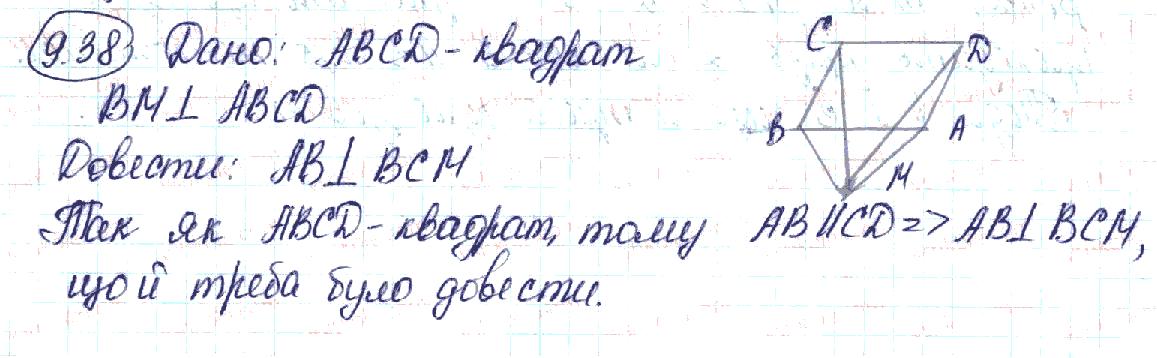 9.38 Дано: ABCD - квадрат
BM⊥ ABCD
Довести: AB⊥ BCM
Так як ABCD - квадрат, тому AB||CD => AB⊥ BCM,
що й треба було довести.
C D
B A
M